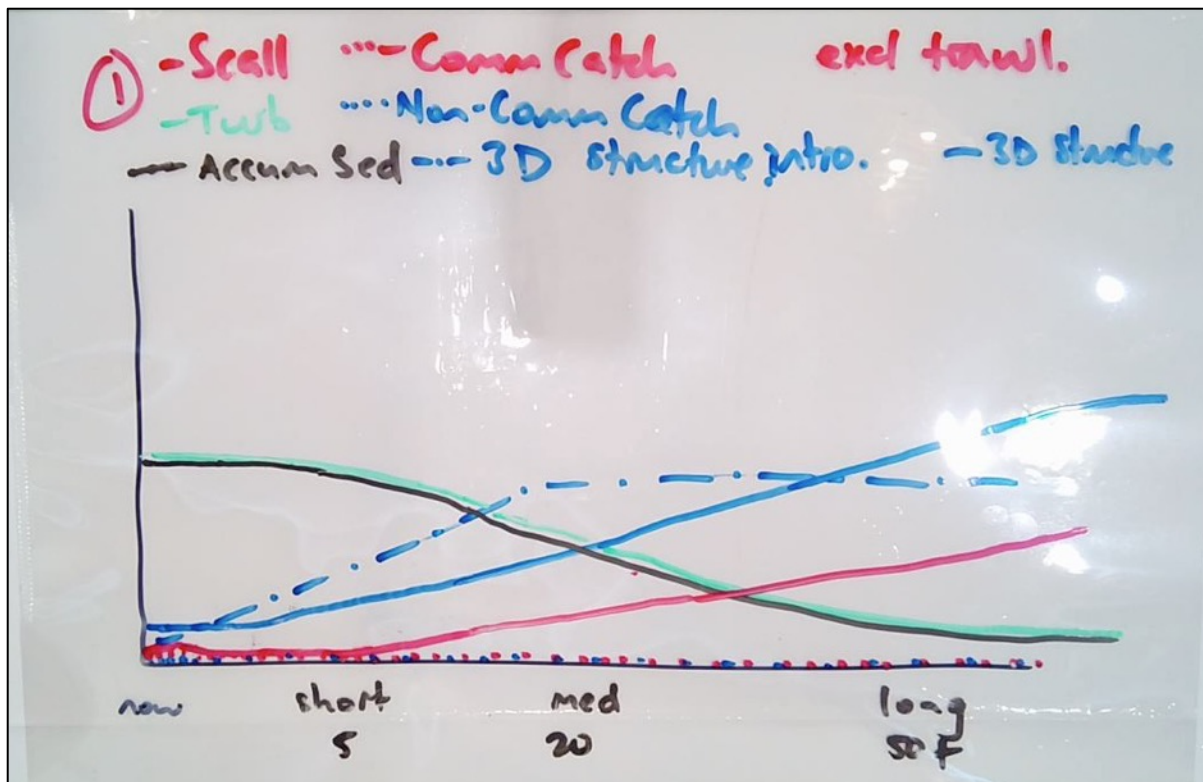 ① -Scall ---Comm Catch excl trawl.
-Turb ---Non-Comm Catch
- Accum Sed -·- 3D structure intro. -3D structure
now short med long
5 20 50